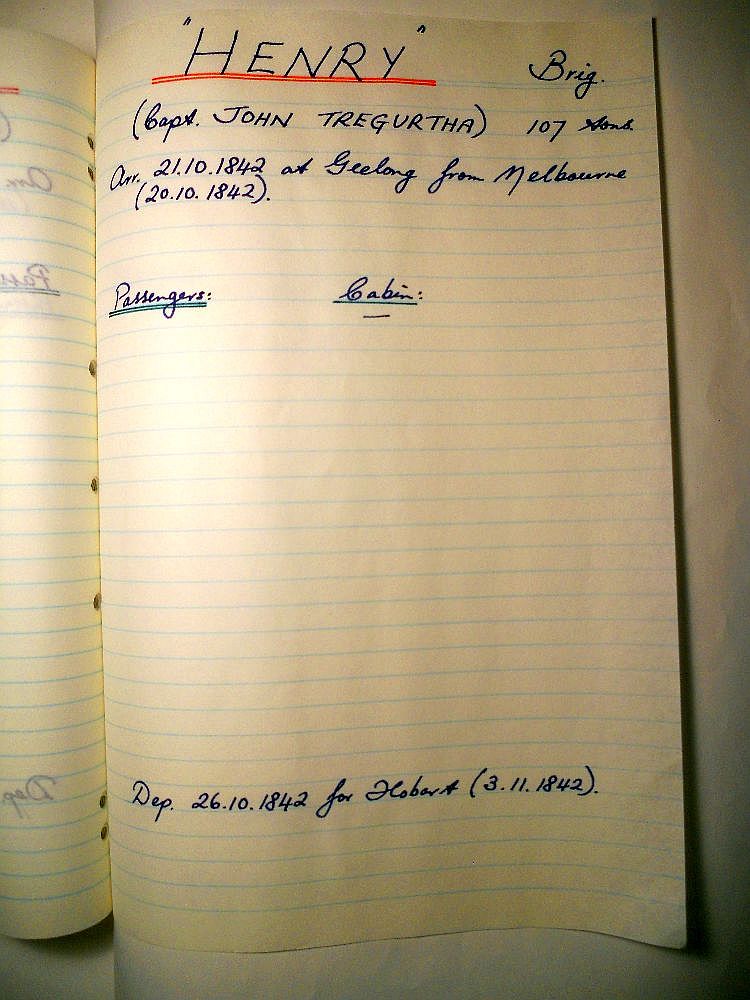 "HENRY" Brig.
(Capt. JOHN TREGURTHA) 107 tons.
Arr. 21.10.1842 at Geelong from Melbourne
(20.10.1842).
Passengers: Cabin:
—
Dep. 26.10.1842 for Hobart (3.11.1842).